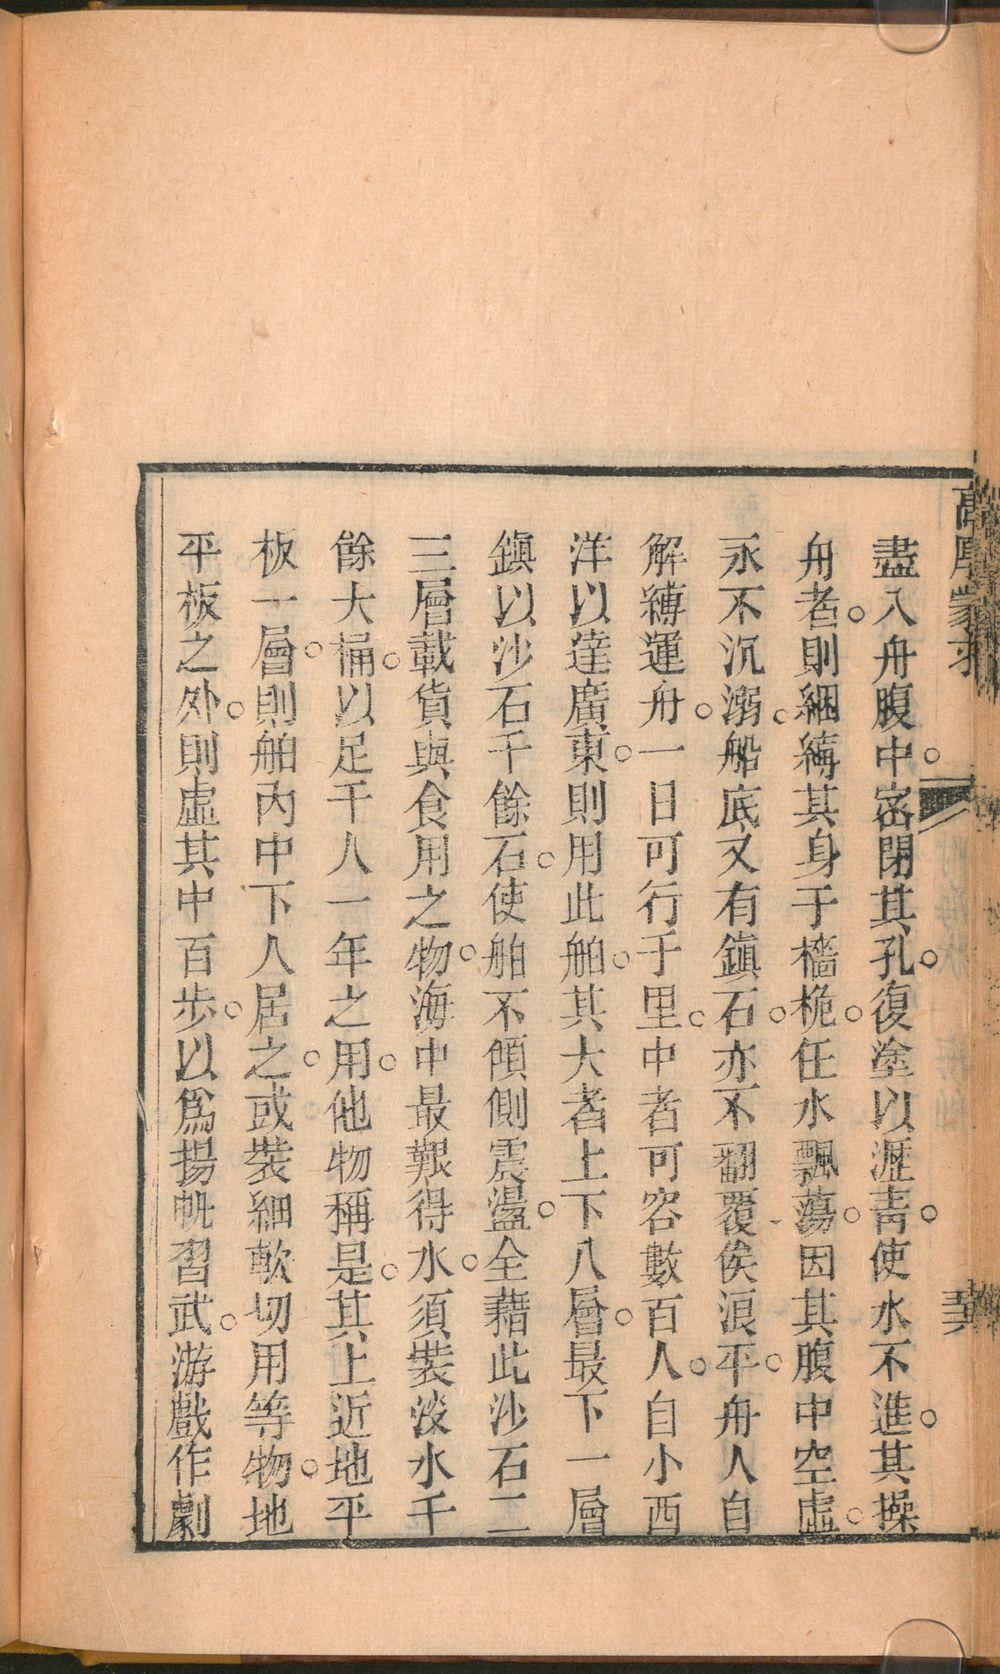 盡入舟腹中。密閉其孔。復塗以瀝青。使水不進。其操
舟者。則綑縛其身于檣桅。任水飄蕩。因其腹中空虛。
永不沉溺。船底又有鎮石。亦不翻覆。俟浪平。舟人自
解縛運舟。一日可行千里。中者可容數百人。自小西
洋以達廣東。則用此舶。其大者上下八層。最下一層
鎮以沙石千餘石。使舶不傾側震盪。全藉此沙石二
三層載貨與食用之物。海中最艱得水。須裝淡水千
餘大桶。以足千人一年之用。他物稱是。其上近地平
板一層。則舶內中下人居之。或裝細軟切用等物。地
平板之外。則虛其中百步。以爲揚帆習武。游戲作劇